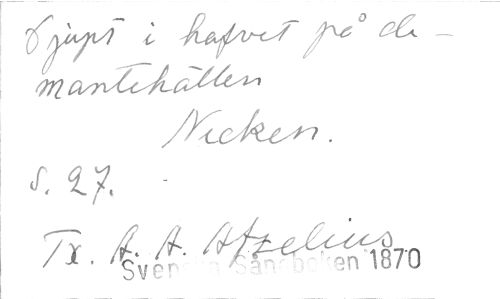 Djupt i hafvet på de-
mantehällen
Necken.
S. 27.
Tx. A. A. Afzelius
Svenska Sångboken 1870